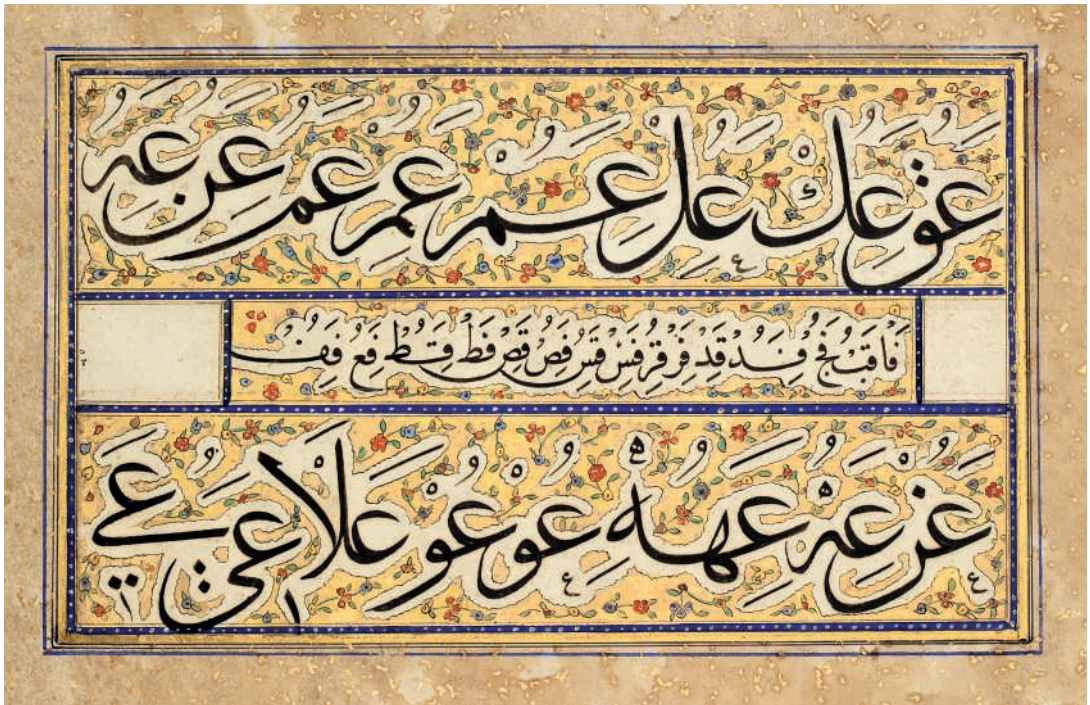 عق عك عل عم عم عم عن عه
فا قب فج فد قد فر قر فس قس فص قص فط قط فع فف
عن عه عهه عو عو علا عي عي